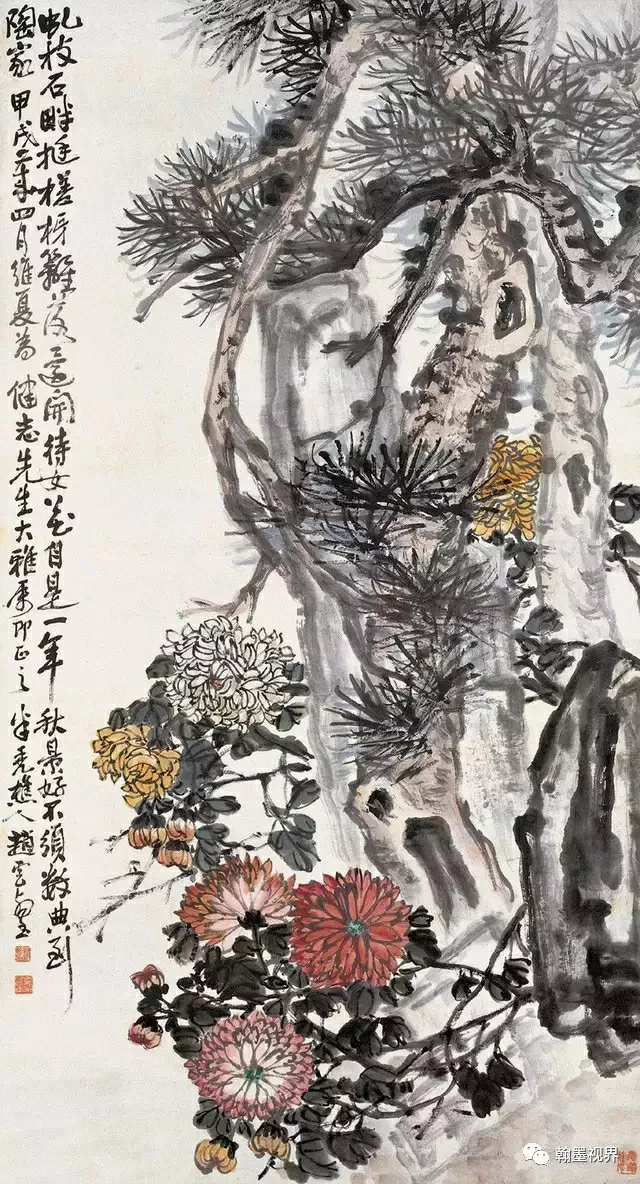 虬枝石畔挺槎枒籬落還開待女花自是一年秋景好不須數典到
陶家 甲戌年四月維夏為 健志先生大雅屬即正之 半禿樵人趙雲壑
翰墨视界